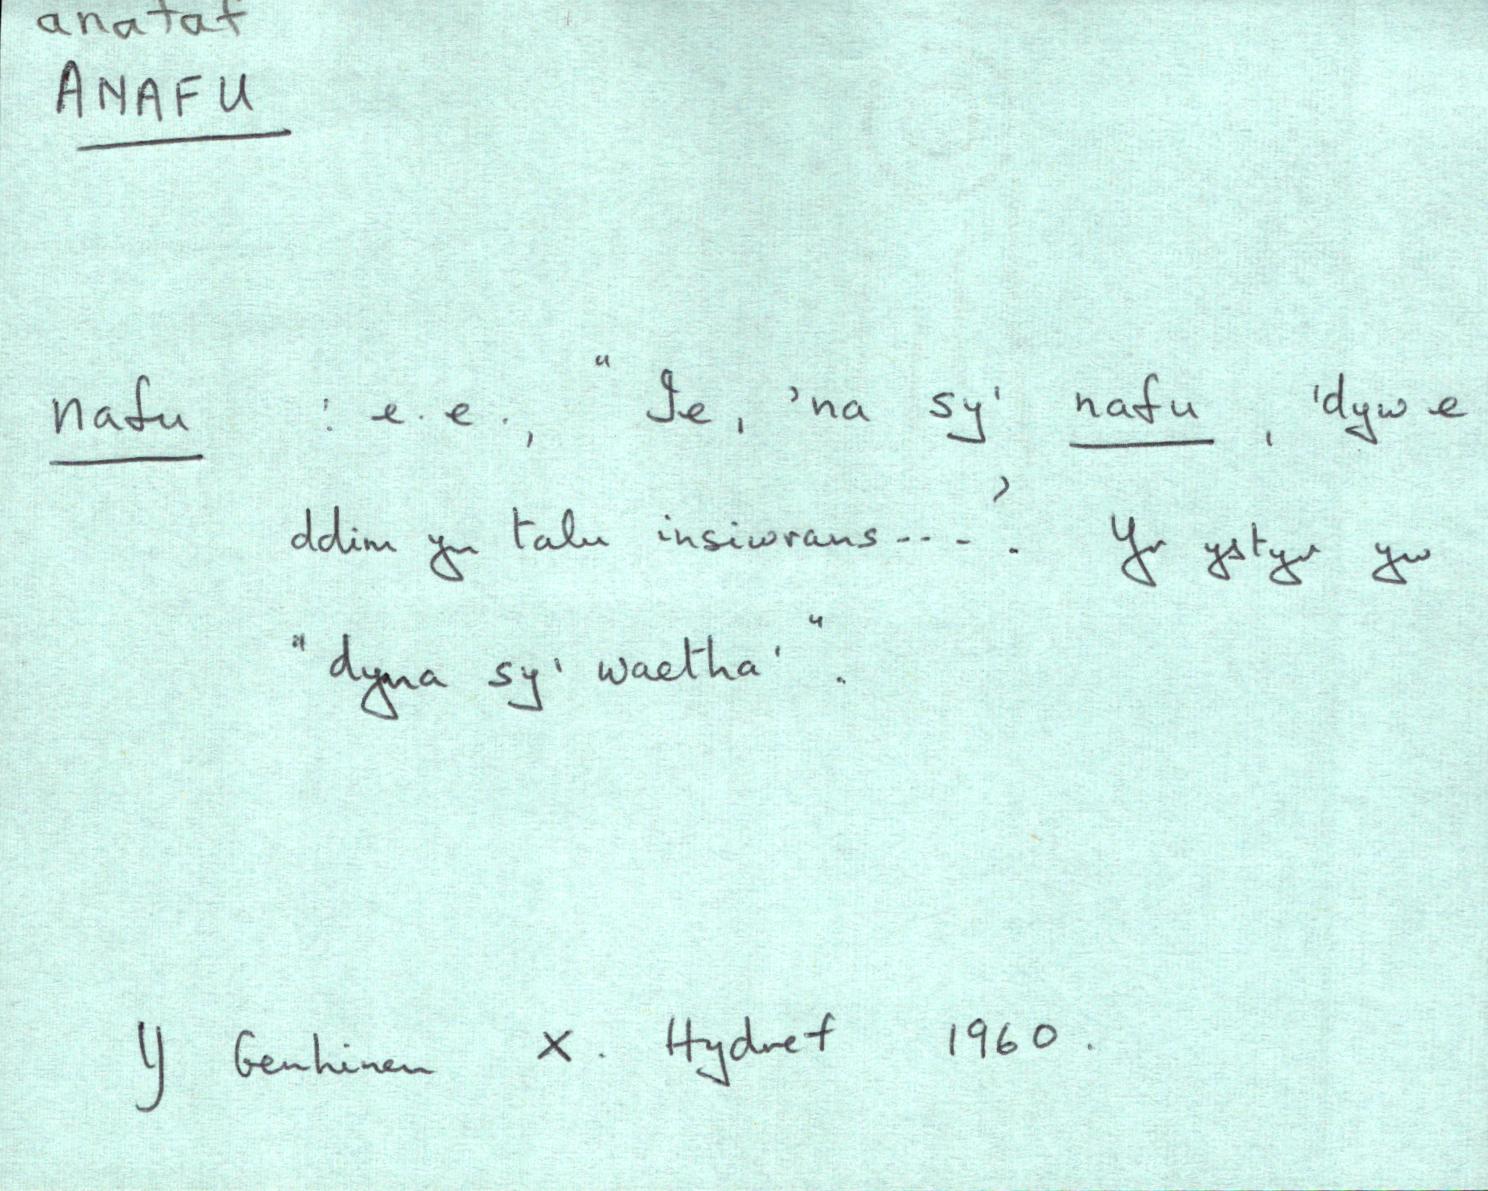 anafaf
ANAFU
nafu : e.e., "Ie, 'na sy' nafu, 'dyw e
ddim yn talu insiwrans----'. Yr ystyr yw
"dyna sy' waetha'".
Y Genhinen X. Hydref 1960.